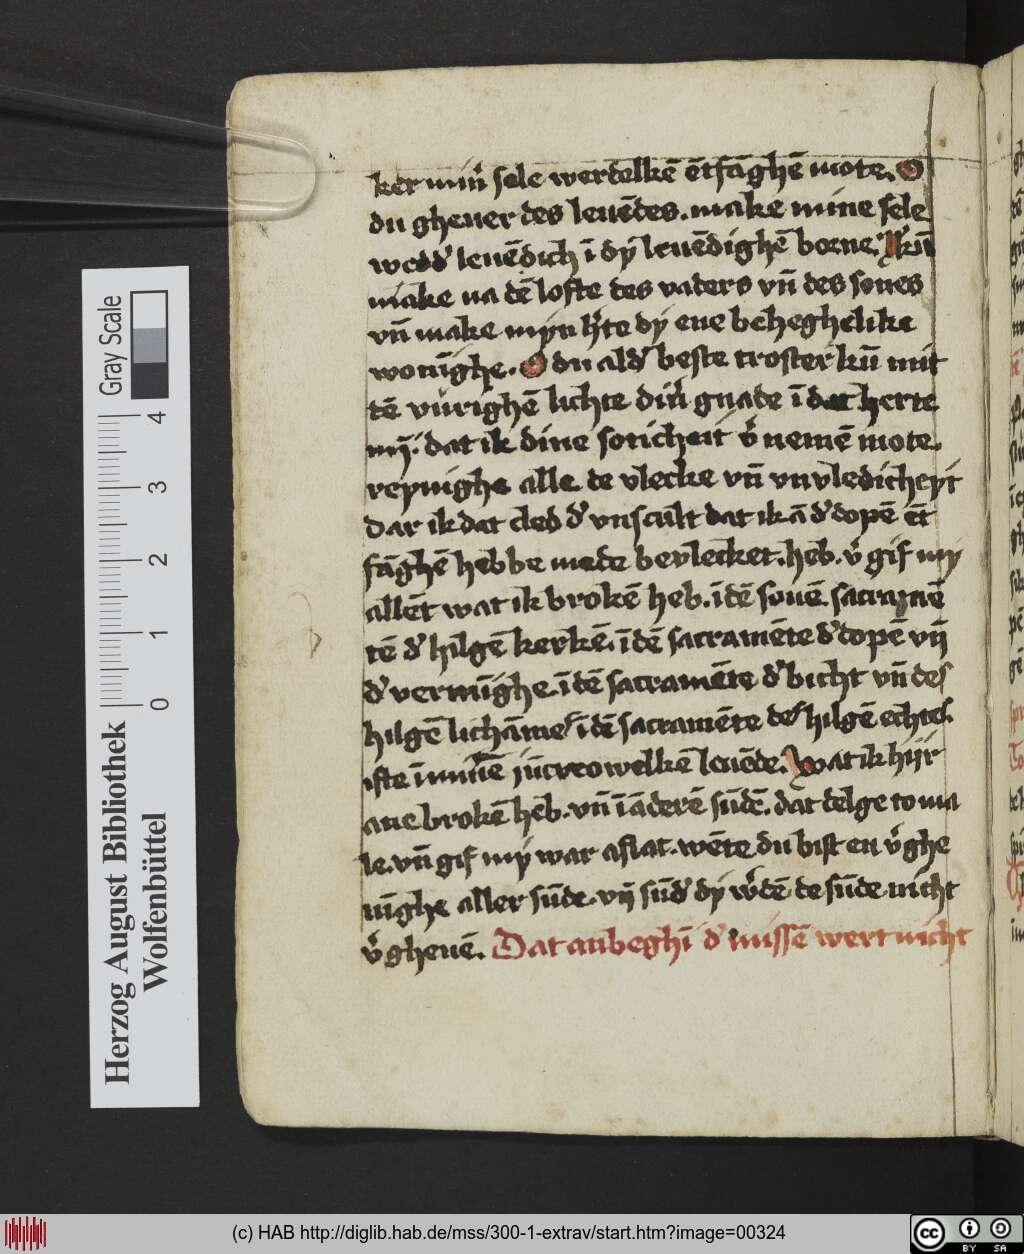 ker min̄ sele werdelkē ētfāghē mote. O
du gheuer des leuēdes. make mine sele
wedd' leuēdich ī dȳ leuēdighē borne. Kū
make na dē lofte des vaders vn̄ des sones
vn̄ make myn h'te dȳ ene beheghelike
wonīghe. O du ald' beste troster kū mit
tē vūrighē lichte din̄ gnade ī dat herte
mȳ. dat ik dine soticheit v' nemē mote.
reynighe alle de vlecke vn̄ vnvledicheyt
dar ik dat cled d' vnscult dat ik ā d' dopē ēt
fāghē hebbe mede bevlecket. heb. v' gif my
allēt wat ik brokē heb. ī dē souē sacramē
tē d' hilgē kerkē. ī dē sacramēte d' dopē vn̄
d' vermīghe. ī dē sacramēte d' bicht vn̄ des
hilgē lichāmes ī dē sacramēte des hilgē echtes.
ifte ī minē jūcvrowelkē leuēde. Wat ik hijr
ane brokē heb. vn̄ ī āderē sūdē. dat delge to ma
le. vn̄ gif my war aflat. wēte du bist en v'ghe
nīghe aller sūde. vn̄ sūd' dȳ w'dē de sūde nicht
v'gheuē. Dat anbeghī d' missē wert nicht
Gray Scale
0 1 2 3 4
Herzog August Bibliothek
Wolfenbüttel
(c) HAB http://diglib.hab.de/mss/300-1-extrav/start.htm?image=00324
cc BY SA